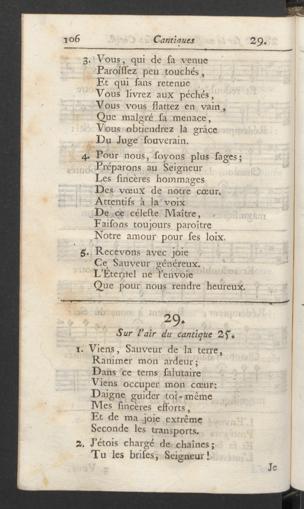 106 Cantiques 29.
3. Vous, qui de sa venue
Paroissez peu touchés,
Et qui sans retenue
Vous livrez aux péchés;
Vous vous flattez en vain,
Que malgré sa menace,
Vous obtiendrez la grâce
Du Juge souverain.
4. Pour nous, soyons plus sages;
Préparons au Seigneur
Les sincères hommages
Des vœux de notre cœur.
Attentifs à la voix
De ce céleste Maître,
Faisons toujours paroître
Notre amour pour ses loix.
5. Recevons avec joie
Ce Sauveur généreux.
L'Éternel ne l'envoie
Que pour nous rendre heureux.
29.
Sur l'air du cantique 25.
1. Viens, Sauveur de la terre,
Ranimer mon ardeur;
Dans ce tems salutaire
Viens occuper mon cœur:
Daigne guider toi-même
Mes sincères efforts,
Et de ma joie extrême
Seconde les transports.
2. J'étois chargé de chaînes;
Tu les brises, Seigneur!
Je